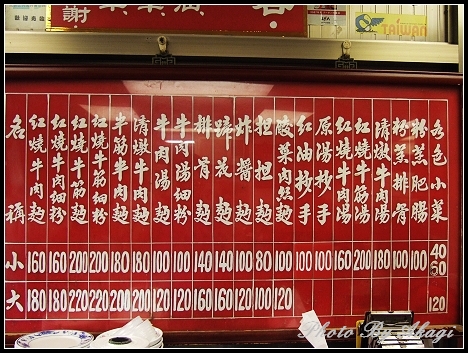 謝
TAIWAN
名稱 小 大
紅燒牛肉麵 160 180
紅燒牛肉細粉 160 180
紅燒牛筋麵 200 220
紅燒牛筋細粉 200 220
半筋半肉麵 180 200
清燉牛肉麵 180 200
牛肉湯麵 100 120
牛肉湯細粉 100 120
排骨麵 140 160
蹄花麵 140 160
炸醬麵 100 120
担担麵 80 100
酸菜肉絲麵 100 120
紅油抄手 100
原湯抄手 100
紅燒牛肉湯 160
紅燒牛筋湯 200
清燉牛肉湯 180
粉蒸排骨 100
粉蒸肥腸 100
各色小菜 40 50 120
Photo By Akagi